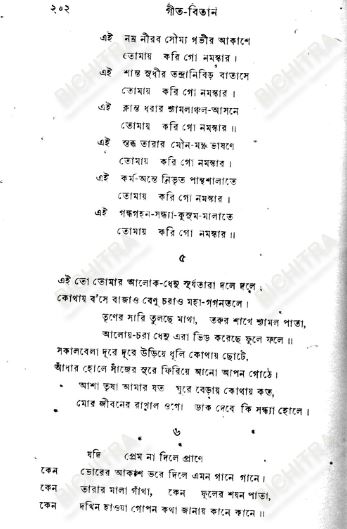 ২০২ গীত-বিতান
এই নম্র নীরব সৌম্য গভীর আকাশে
তোমায় করি গো নমস্কার।
এই শান্ত সুধীর তন্দ্রানিবিড় বাতাসে
তোমায় করি গো নমস্কার।
এই ক্লান্ত ধরার শ্যামলাঞ্চল-আসনে
তোমায় করি গো নমস্কার॥
এই স্তব্ধ তারার মৌন-মন্ত্র ভাষণে
তোমায় করি গো নমস্কার।
এই কর্ম-অন্তে নিভৃত পান্থশালাতে
তোমায় করি গো নমস্কার।
এই গন্ধগহন-সন্ধ্যা-কুসুম-মালাতে
তোমায় করি গো নমস্কার॥
৫
এই তো তোমার আলোক-ধেনু সূর্যতারা দলে দলে;
কোথায় ব'সে বাজাও বেণু চরাও মহা-গগনতলে।
তৃণের সারি তুলছে মাথা, তরুর শাখে শ্যামল পাতা,
আলোয়-চরা ধেনু এরা ভিড় করেছে ফুলে ফলে॥
সকালবেলা দূরে দূরে উড়িয়ে ধূলি কোথায় ছোটে,
আঁধার হোলে সাঁজের সুরে ফিরিয়ে আনো আপন গোঠে।
আশা তৃষা আমার যত ঘুরে বেড়ায় কোথায় কত,
মোর জীবনের রাখাল ওগো ডাক দেবে কি সন্ধ্যা হোলে।
৬
যদি প্রেম না দিলে প্রাণে
কেন ভোরের আকাশ ভরে দিলে এমন গানে গানে।
কেন তারার মালা গাঁথা, কেন ফুলের শয়ন পাতা,
কেন দখিন হাওয়া গোপন কথা জানায় কানে কানে॥
BICHITRA